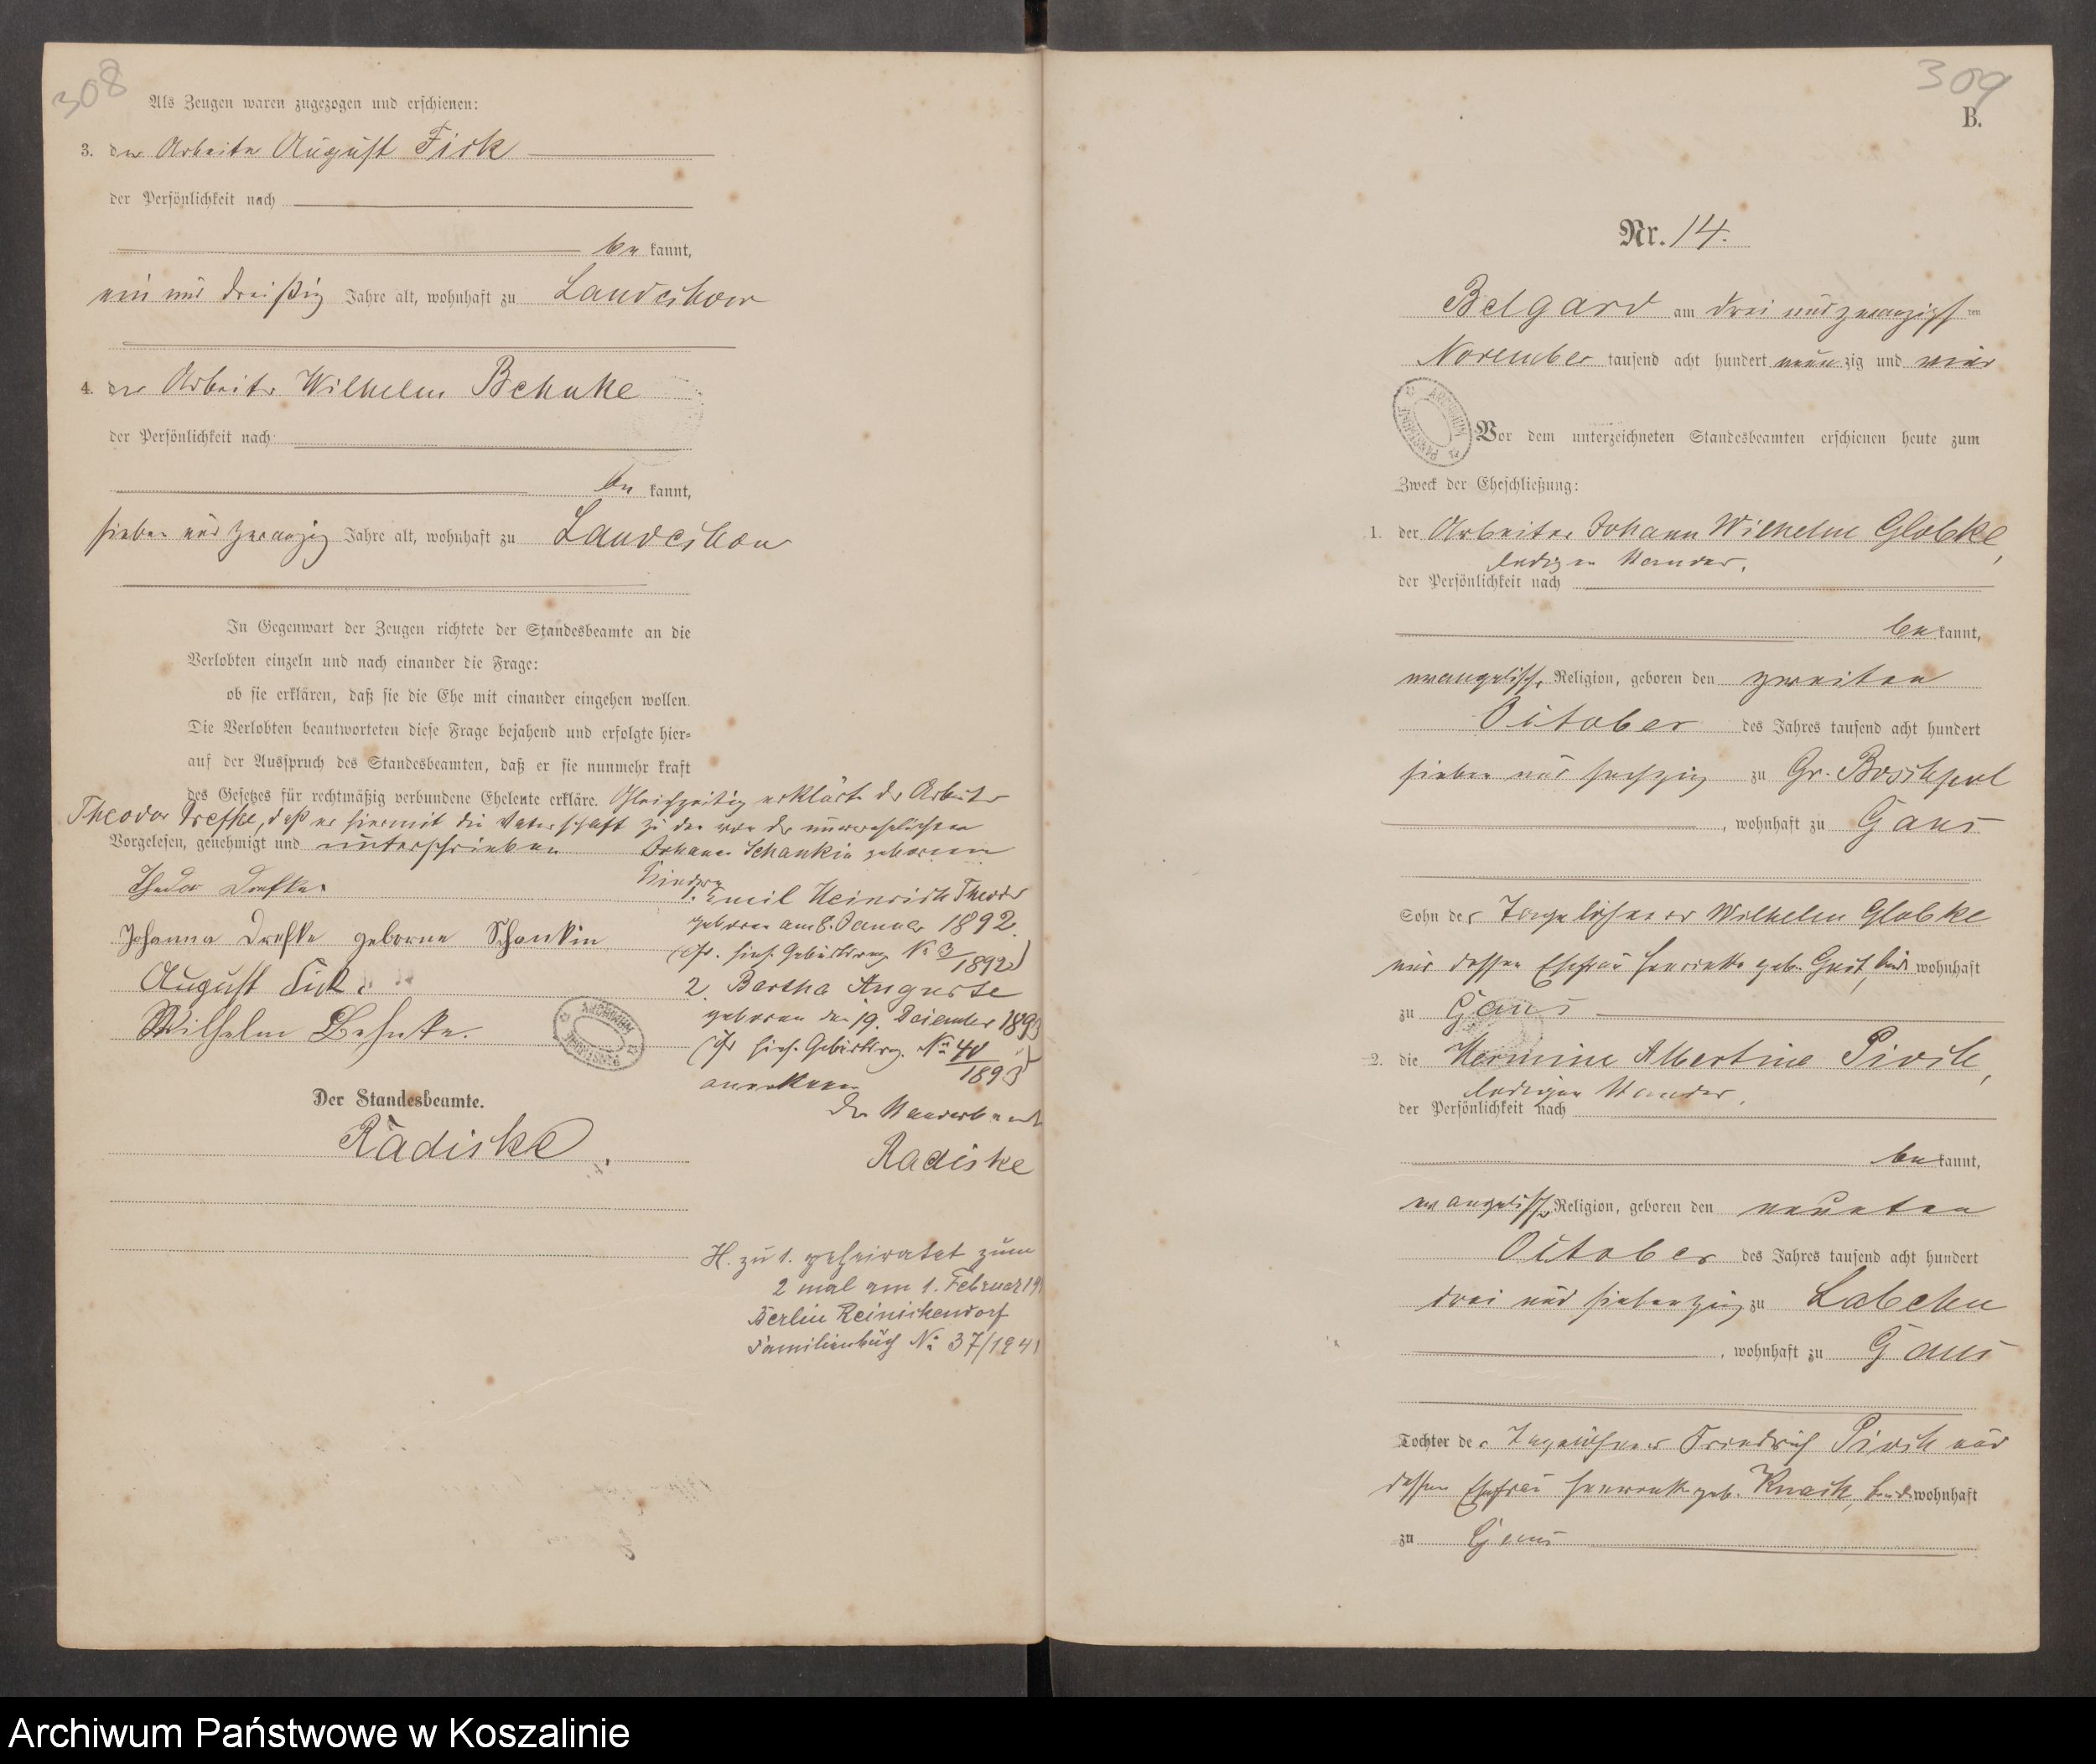 308
Als Zeugen waren zugezogen und erschienen:
3. der Arbeiter August Fick
der Persönlichkeit nach
be kannt,
ein und dreißig Jahre alt, wohnhaft zu Landechow
4. der Arbeiter Wilhelm Behnke
der Persönlichkeit nach
be kannt,
sieben und zwanzig Jahre alt, wohnhaft zu Landechow
In Gegenwart der Zeugen richtete der Standesbeamte an die
Verlobten einzeln und nach einander die Frage:
ob sie erklären, daß sie die Ehe mit einander eingehen wollen.
Die Verlobten beantworteten diese Frage bejahend und erfolgte hier-
auf der Ausspruch des Standesbeamten, daß er sie nunmehr kraft
des Gesetzes für rechtmäßig verbundene Eheleute erkläre. Gleichzeitig erklärte der Arbeiter
Theodor Drefke, daß er hiermit die Vaterschaft zu den von der unverehelichten
Johanna Schankin geborenen
Vorgelesen, genehmigt und unterschrieben
Kindern
Theodor Drefke
1. Emil Heinrich Theodor
geboren am 8. Januar 1892.
Johanna Drefke geborne Schankin
(cfr. hies. Geburtsreg. No 3/1892)
August Fick
2. Bertha Auguste
geboren den 19. December 1893
Wilhelm Behnke.
(cfr hies. Geburtsreg. No 40/1893)
anerkenne
Der Standesbeamte.
Der Standesbeamte
Radiske
Radiske
H. zu 1. geheiratet zum
2 mal am 1. Februar 19
Berlin Reinickendorf
Familienbuch No 37/1941
309
B.
Nr. 14.
Belgard am drei und zwanzigsten
November tausend acht hundert neunzig und vier
ARCHIWUM PAŃSTWOWE
Vor dem unterzeichneten Standesbeamten erschienen heute zum
Zweck der Eheschließung:
1. der Arbeiter Johann Wilhelm Globke,
ledigen Standes,
der Persönlichkeit nach
be kannt,
evangelischer Religion, geboren den zweiten
October des Jahres tausend acht hundert
sieben und sechzig zu Gr. Boschpol
, wohnhaft zu Gans
Sohn des Tagelöhners Wilhelm Globke
und dessen Ehefrau Henriette geb. beide wohnhaft
zu Gans
2. die Hermine Albertine Pirch,
ledigen Standes,
der Persönlichkeit nach
be kannt,
evangelischer Religion, geboren den neunten
October des Jahres tausend acht hundert
drei und siebenzig zu Labehn
, wohnhaft zu Gans
Tochter des Tagelöhners Friedrich Pirch und
dessen Ehefrau Henriette geb. Knach, beide wohnhaft
zu Gans
Archiwum Państwowe w Koszalinie